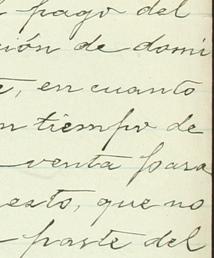 pago del
ión de domi
, en cuanto
n tiempo de
venta para
esto, que no
parte del